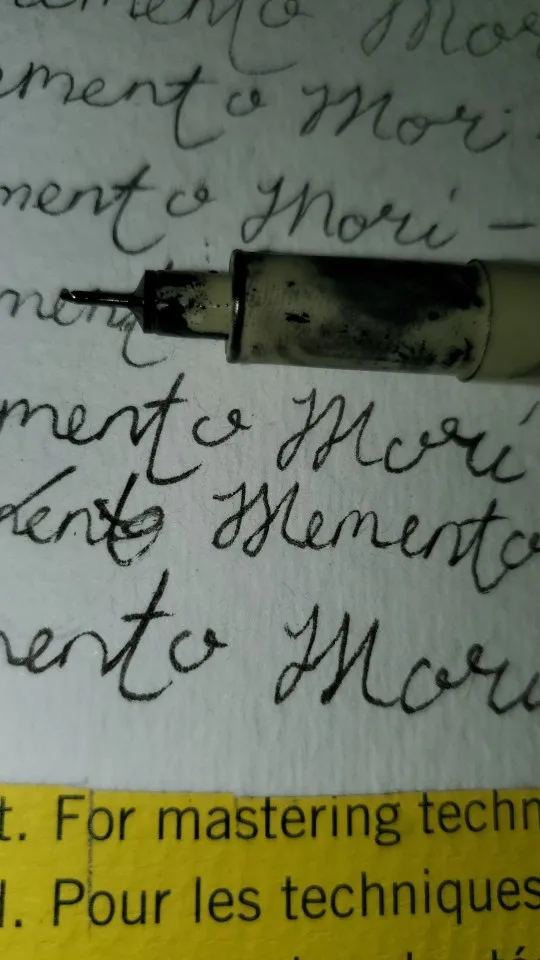 emento Mor
emento Mori -
mento Mori -
ment
mento Mori
Memento
mento Mori
t. For mastering techn
d. Pour les techniques